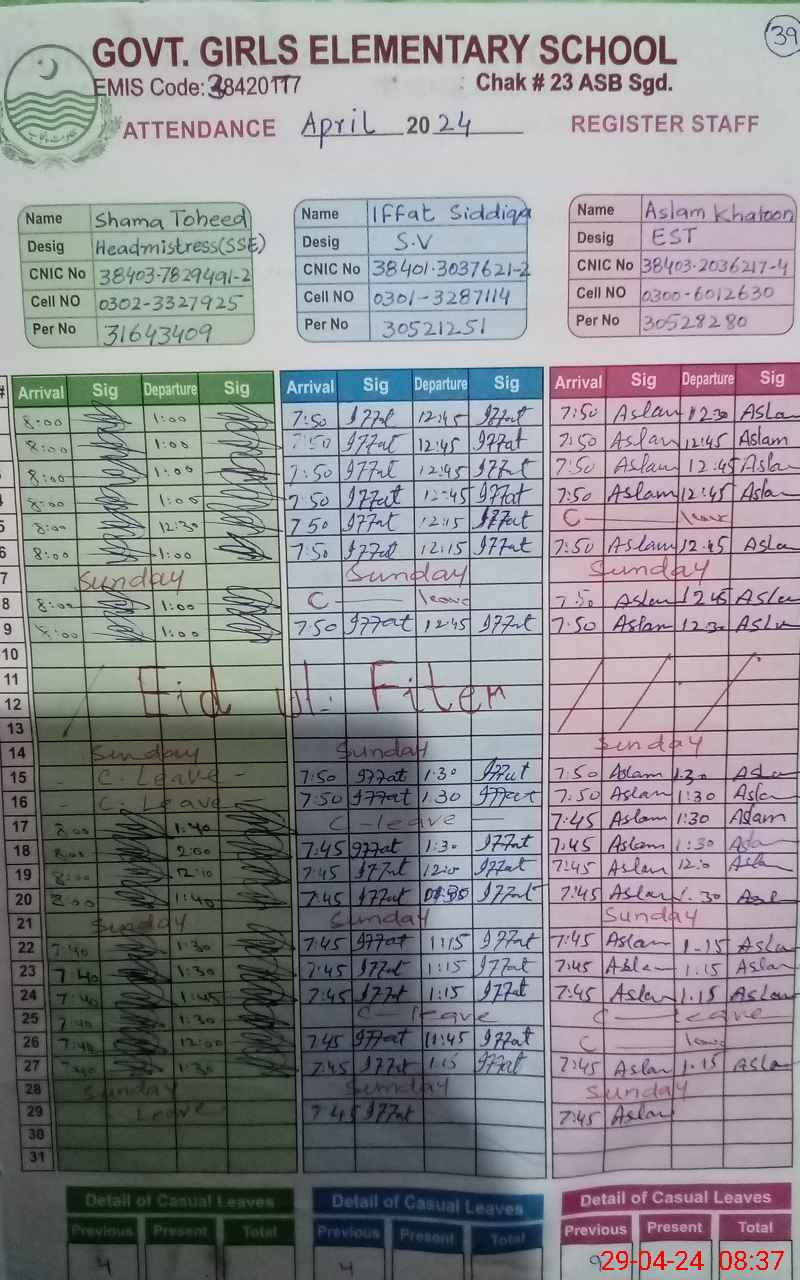 39
GOVT. GIRLS ELEMENTARY SCHOOL
EMIS Code: 38420117 Chak # 23 ASB Sgd.
ATTENDANCE April 2024 REGISTER STAFF
Name Shama Toheed Name Iffat Siddiqa Name Aslam Khatoon
Desig Headmistress(SSE) Desig S.V Desig EST
CNIC No 38403-7829491-2 CNIC No 38401-3037621-2 CNIC No 38403-2036217-4
Cell NO 0302-3327925 Cell NO 0301-3287114 Cell NO 0300-6012630
Per No 31643409 Per No 30521251 Per No 30528280
# Arrival Sig Departure Sig Arrival Sig Departure Sig Arrival Sig Departure Sig
8:00 1:00 7:50 Iffat 12:45 Iffat 7:50 Aslam 12 30 Aslam
8:00 1:00 7:50 Iffat 12:45 Iffat 7:50 Aslam 12:45 Aslam
8:00 1:00 7:50 Iffat 12:45 Iffat 7:50 Aslam 12:45 Asla
8:00 1:00 7:50 Iffat 12:45 Iffat 7:50 Aslam 12:45 Asla
5 8:00 12:30 7 50 Iffat 12:15 Iffat C leave
6 8:00 1:00 7:50 Iffat 12:15 Iffat 7:50 Aslam 12:45 Asla
7 Sunday Sunday Sunday
8 8:00 1:00 C leave 7:50 Aslam 12 45 Asla
9 8:00 1:00 7:50 Iffat 12:45 Iffat 7:50 Aslam 12 30 Asla
10
11 Eid ul. Fiter
12
13
14 Sunday Sunday Sunday
15 - C. Leave - 7:50 Iffat 1:30 Iffat 7:50 Aslam 1:30 Asla
16 - C. Leave - 7:50 Iffat 1:30 Iffat 7:50 Aslam 1:30 Asla
17 8:00 1:40 C - leave 7:45 Aslam 1:30 Aslam
18 8:00 2:00 7:45 Iffat 1:30 Iffat 7:45 Aslam 1:30 Asla
19 8:00 7:45 Iffat 12:0 Iffat 7:45 Aslam 12:0 Asla
20 8:00 1:40 7:45 Iffat Iffat 7:45 Aslam 1.30 Asl
21 Sunday Sunday Sunday
22 7:40 1:30 7:45 Iffat 1:15 Iffat 7:45 Aslam 1.15 Asla
23 7:40 1:30 7:45 Iffat 1:15 Iffat 7:45 Aslam 1.15 Aslam
24 7:40 1:45 7:45 Iffat 1:15 Iffat 7:45 Aslam 1.15 Aslam
25 7:40 1:30 C - leave C leave
26 7:40 12:00 7:45 Iffat 11:45 Iffat C leave
27 7:40 1:30 7:45 Iffat 1:15 Iffat 7:45 Aslam 1.15 Asla
28 Sunday Sunday Sunday
29 Leave 7:45 Iffat 7:45 Aslam
30
31
Detail of Casual Leaves Detail of Casual Leaves Detail of Casual Leaves
Previous Present Total Previous Present Total Previous Present Total
4 4 9
29-04-24 08:37